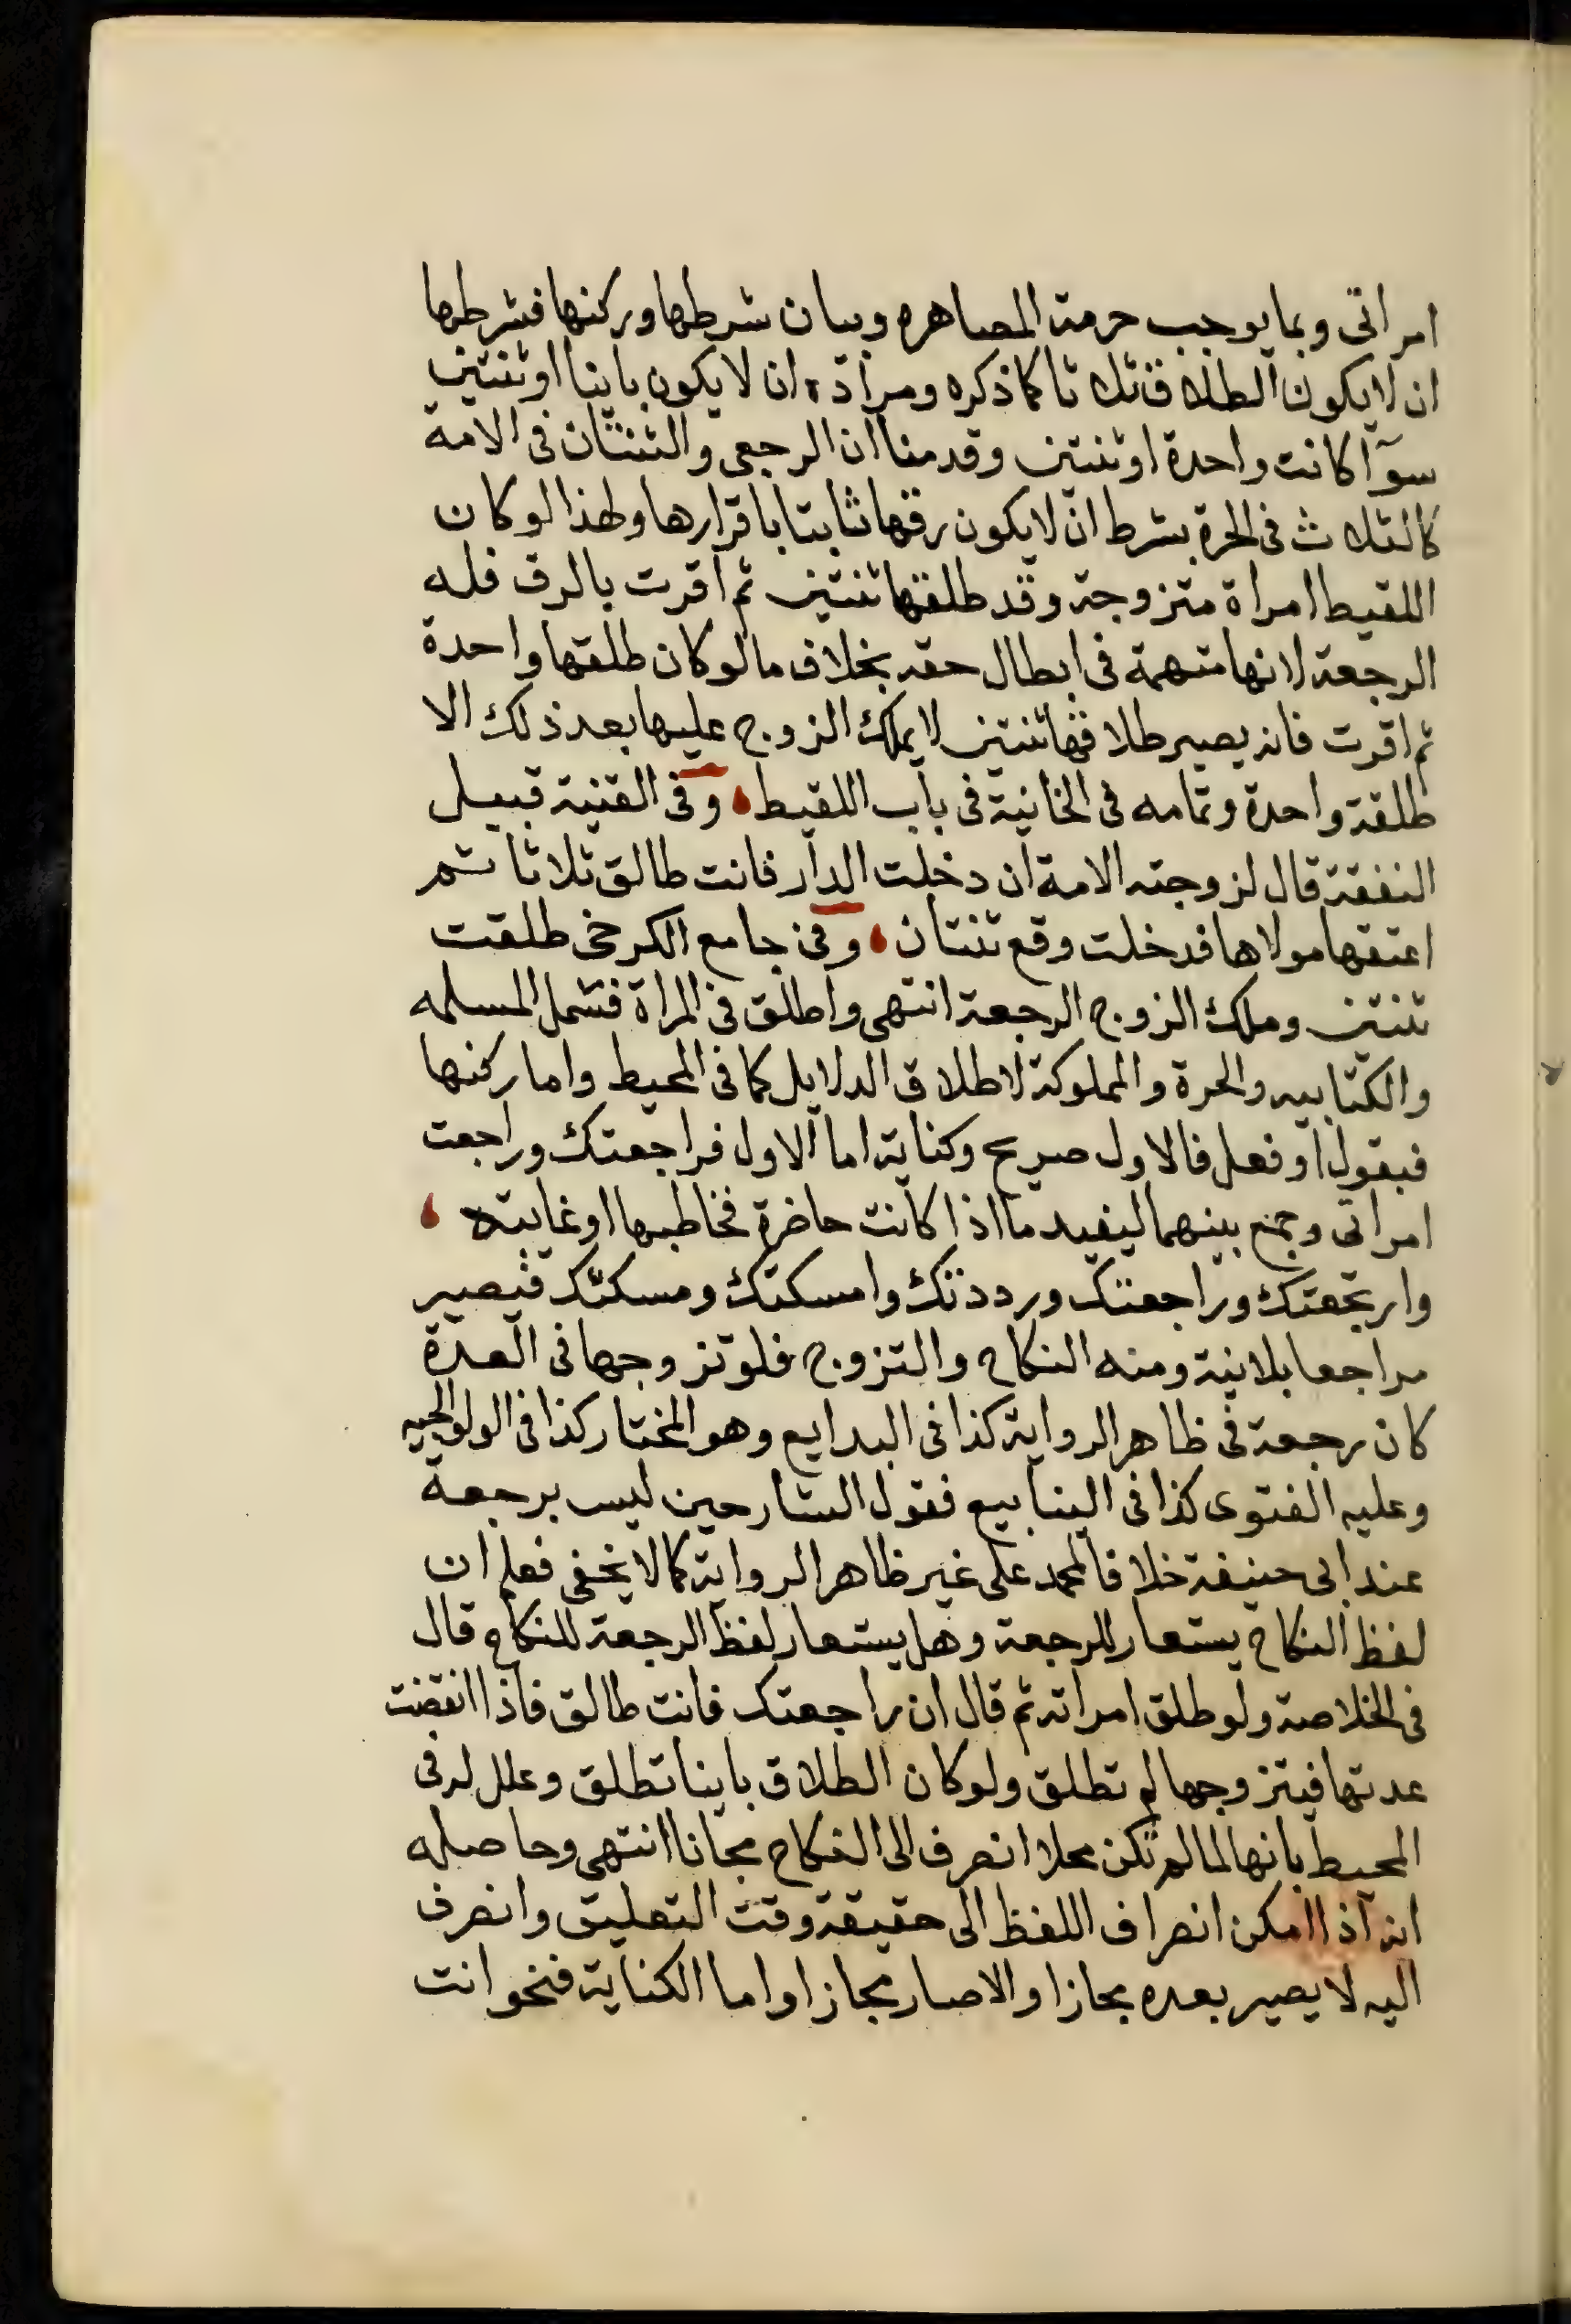 امراتى وبما يوجب حرمة المصاهره وبيان شرطها وركنها فشرطها
ان لا يكون الطلاق ثلاثا كما ذكره ومراده ان لا يكون باينا او ثنتين
سوآ كانت واحدة او ثنتين وقدمنا ان الرجعى والثنتان فى الامة
كالثلاث فى الحرة بشرط ان لا يكون رقها ثابتا باقرارها ولهذا لو كان
اللقيط امراة متزوجة وقد طلقها ثنتين ثم اقرت بالرق فله
الرجعة لانها متهمة فى ابطال حقه بخلاف ما لو كان طلقها واحدة
ثم اقرت فانه يصير طلاقها ثنتين لا يملك الزوج عليها بعد ذلك الا
طلقة واحدة وتمامه فى الخانية فى باب اللقيط، وفى القنية قبيل
النفقة قال لزوجته الامة ان دخلت الدار فانت طالق ثلاثا ثم
اعتقها مولاها فدخلت وقع ثنتان، وفى جامع الكرخى طلقت
ثنتين وملك الزوج الرجعة انتهى واطلق فى المراة فشمل المسلمه
والكتابيه والحرة والمملوكة لاطلاق الدلايل كما فى المحيط واما ركنها
فبقول او فعل فالاول صريح وكناية اما الاول فراجعتك وراجعت
امراتى وجمع بينهما ليفيد ما اذا كانت حاضرة فخاطبها او غايبته ،
وارتجعتك وراجعتك ورددتك وامسكتك ومسكتك فيصير
مراجعا بلا نية ومنه النكاح والتزوج فلو تزوجها فى العدة
كان رجعة فى ظاهر الرواية كذا فى البدايع وهو المختار كذا فى الولوالجيه
وعليه الفتوى كذا فى الينابيع فقول الشارحين ليس برجعة
عند ابى حنيفة خلافا لمحمد على غير ظاهر الرواية كما لا يخفى فعلم ان
لفظ النكاح يستعار للرجعة وهل يستعار لفظ الرجعة للنكاح قال
فى الخلاصة ولو طلق امراته ثم قال ان راجعتك فانت طالق فاذا انقضت
عدتها فيتزوجها لم تطلق ولو كان الطلاق باينا تطلق وعلل له فى
المحيط بانها لما لم تكن محلا انصرف الى النكاح مجانا انتهى وحاصله
انه آذا امكن انصراف اللفظ الى حقيقة وقت التعليق وانصرف
اليه لا يصير بعده مجازا والا صار مجازا واما الكناية فنحو انت